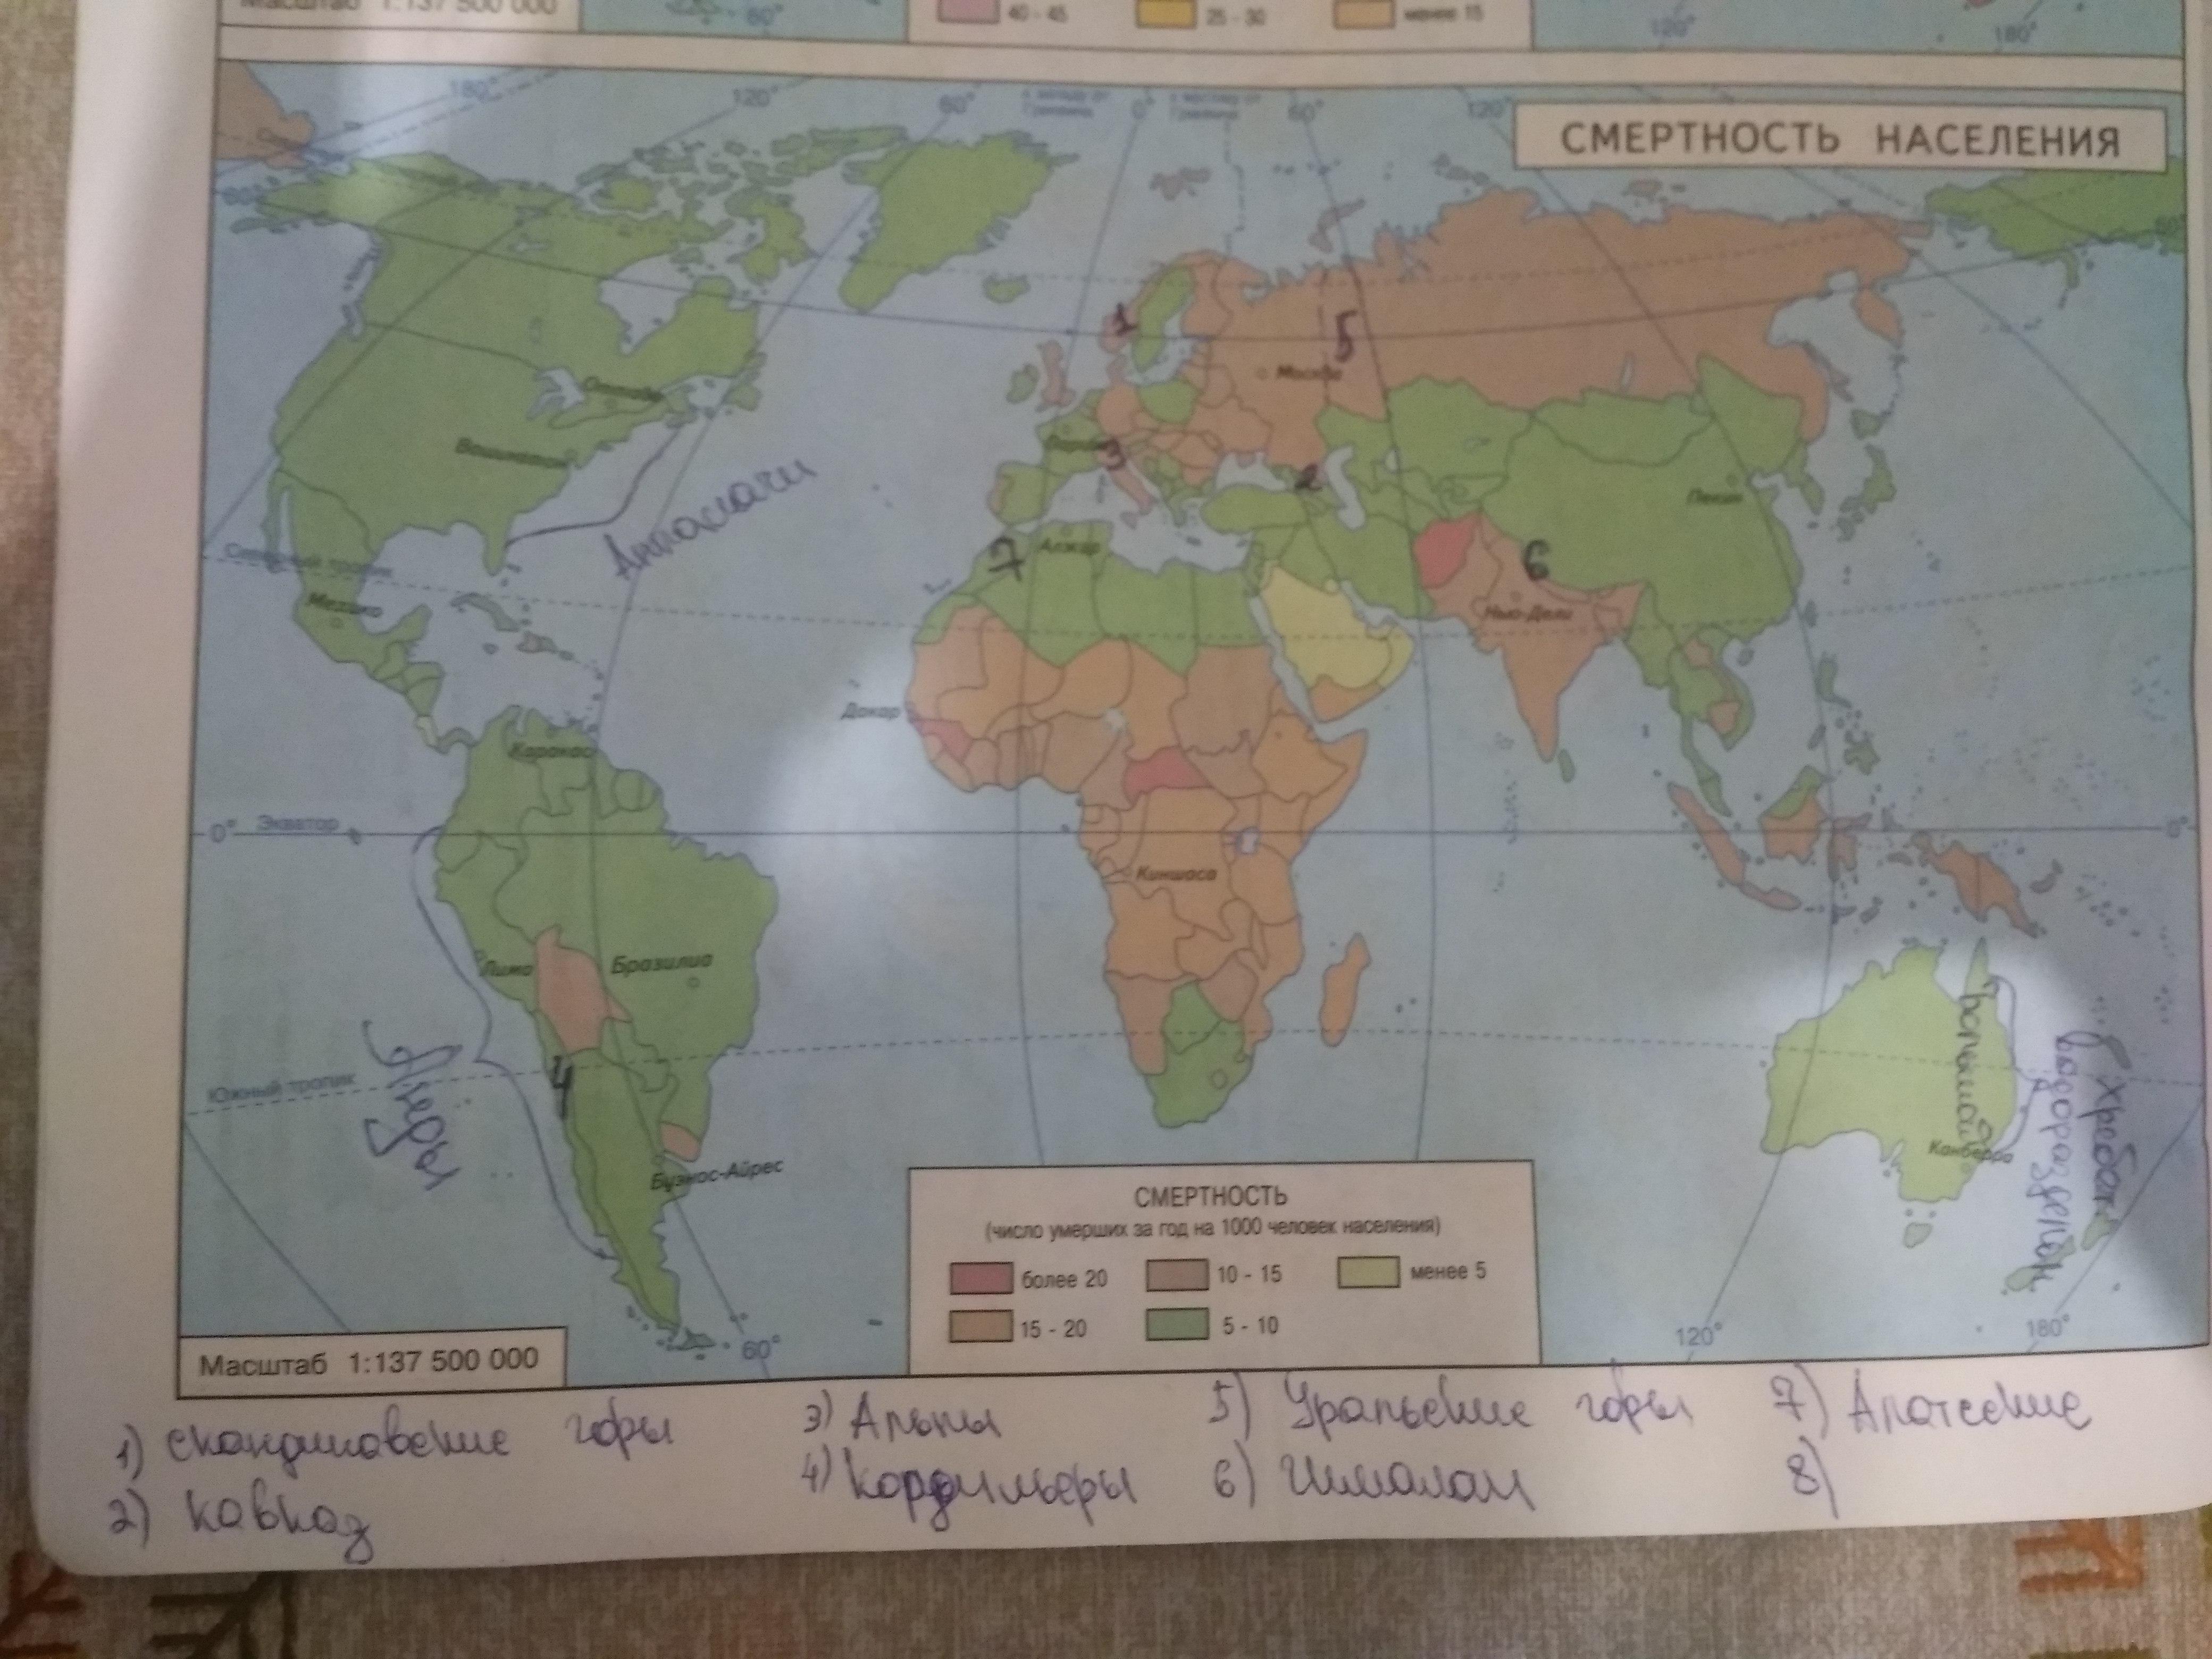 Масштаб 1:137 500 000
60°
40 - 45
25 - 30
менее 15
120°
180°
180°
120°
60°
0°
60°
120°
СМЕРТНОСТЬ НАСЕЛЕНИЯ
1
5
Москва
Оттава
Вашингтон
Париж
3
2
Пекин
Аппалачи
7
Алжир
6
Северный тропик
Мехико
Нью-Дели
Дакар
Каракас
0° Экватор
0°
Киншаса
Лима
Бразилиа
Большой
Водораздел.
хребет
Анды
Южный тропик
4
Канберра
Буэнос-Айрес
СМЕРТНОСТЬ
(число умерших за год на 1000 человек населения)
более 20
10 - 15
менее 5
15 - 20
5 - 10
60°
120°
180°
Масштаб 1:137 500 000
1) Скандиновские горы
3) Альпы
5) Уральские горы
7) Алатские
2) Кавказ
4) Кордильеры
6) Гималаи
8)